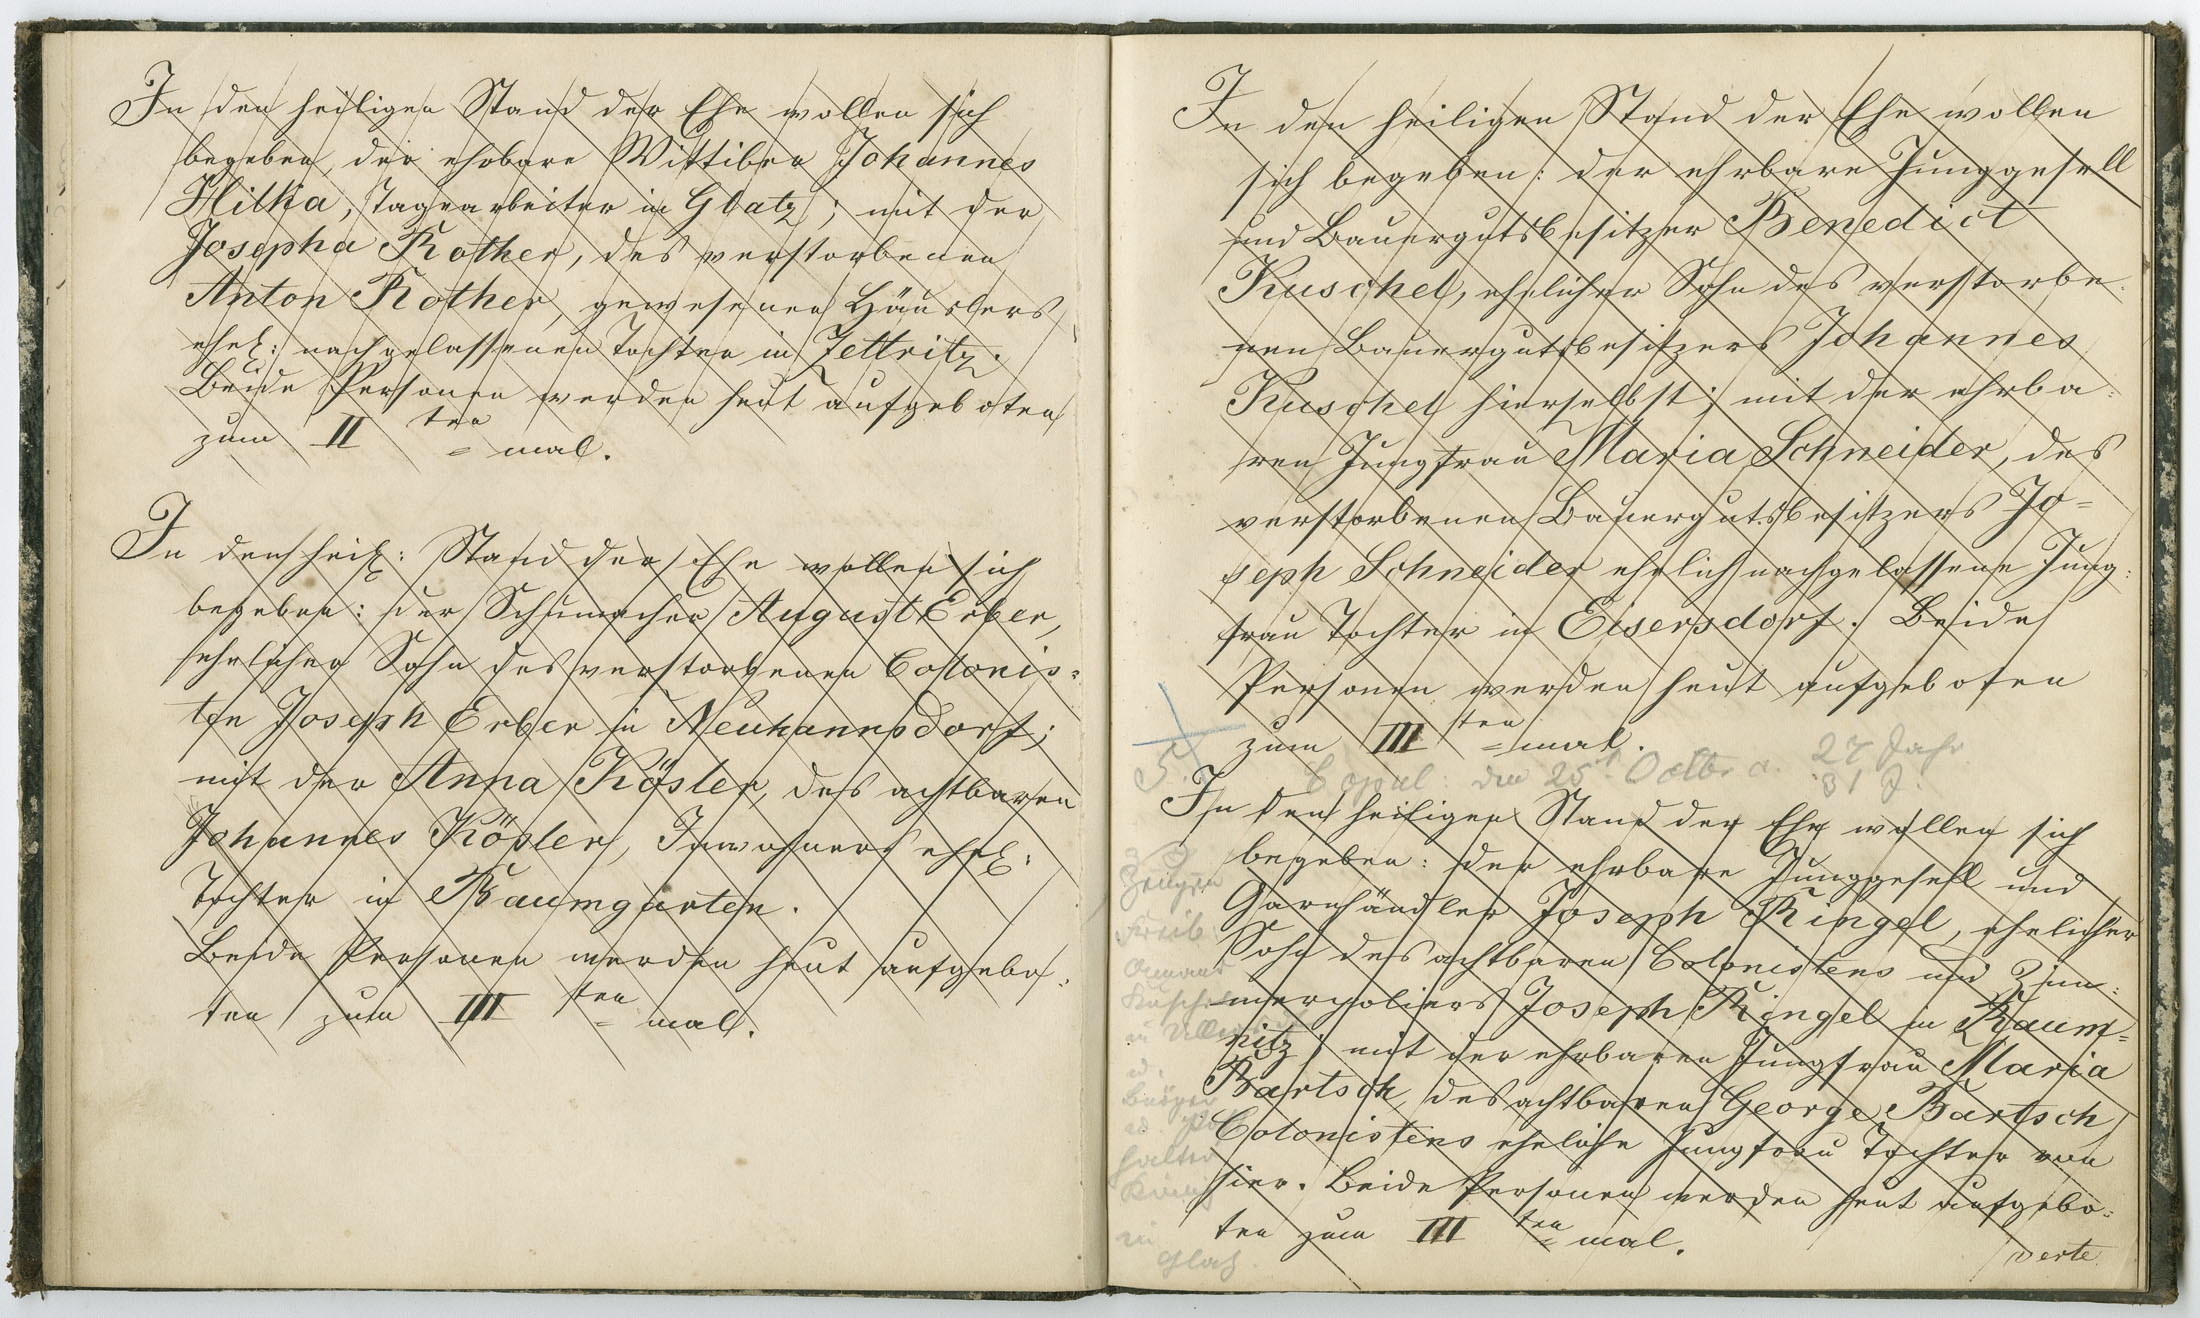 In den heiligen Stand der Ehe wollen sich
begeben, der ehrbare Wittiber Johannes
Hilka, Tagearbeiter in Glatz; mit der
Josepha Rother, des verstorbenen
Anton Rother, gewesenen Häuslers
ehel: nachgelassenen Tochter in Zettritz.
Beide Personen werden heut aufgeboten
zum II ten = mal.
In den heil: Stand der Ehe wollen sich
begeben: der Schumacher August Erber,
ehelicher Sohn des verstorbenen Colonis=
ten Joseph Erber in Neuhannsdorf;
mit der Anna Kösler, des achtbaren
Johannes Kösler, Inwohners ehel:
Tochter in Baumgarten.
Beide Personen werden heut aufgebo=
ten zum III ten = mal.
In den heiligen Stand der Ehe wollen
sich begeben: der ehrbare Junggesell
und Bauergutsbesitzer Benedict
Kuschel, ehelicher Sohn des verstorbe=
nen Bauergutsbesitzers Johannes
Kuschel hierselbst; mit der ehrba=
ren Jungfrau Maria Schneider, des
verstorbenen Bauergutsbesitzers Jo=
seph Schneider ehelich nachgelassene Jung=
frau Tochter in Eisersdorf. Beide
Personen werden heut aufgeboten
zum III ten = mal.
5. Copul: den 25t Octbr a. 27 Jahr
31 J.
In den heiligen Stand der Ehe wollen sich
begeben: der ehrbare Junggesell und
Garnhändler Joseph Ringel, ehelicher
Sohn des achtbaren Colonistens und Zim=
merpoliers Joseph Ringel in Raum=
nitz; mit der ehrbaren Jungfrau Maria
Bartsch, des achtbaren George Bartsch
Colonistens eheliche Jungfrau Tochter von
hier. Beide Personen werden heut aufgebo=
ten zum III ten = mal.
verte
Zeugen
in
Glatz